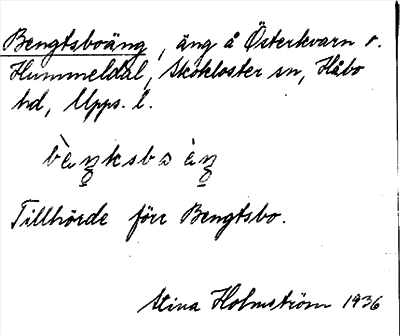 Bengtsboäng, äng å Österkvarn o.
Hummeldal, Skokloster sn, Håbo
hd, Upps. l.
Tillhörde förr Bengtsbo.
Stina Holmström 1936